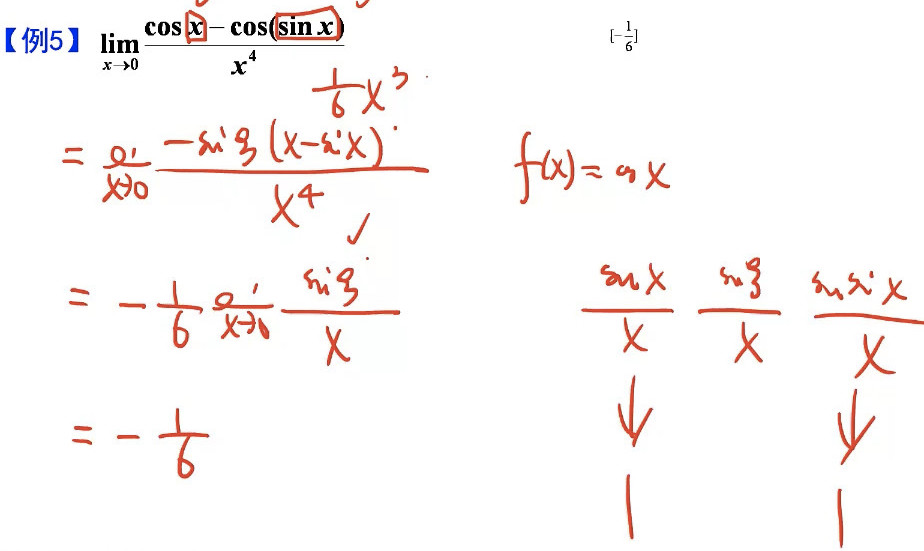 【例5】 lim x→0 (cos x − cos(sin x)) / x⁴ [−1/6]
1/6 x³
= lim x→0 −sin ξ (x − sin x) / x⁴
f(x) = cos x
= −1/6 lim x→0 sin ξ / x
sin x / x sin ξ / x sin sin x / x
↓ ↓
= −1/6
1 1